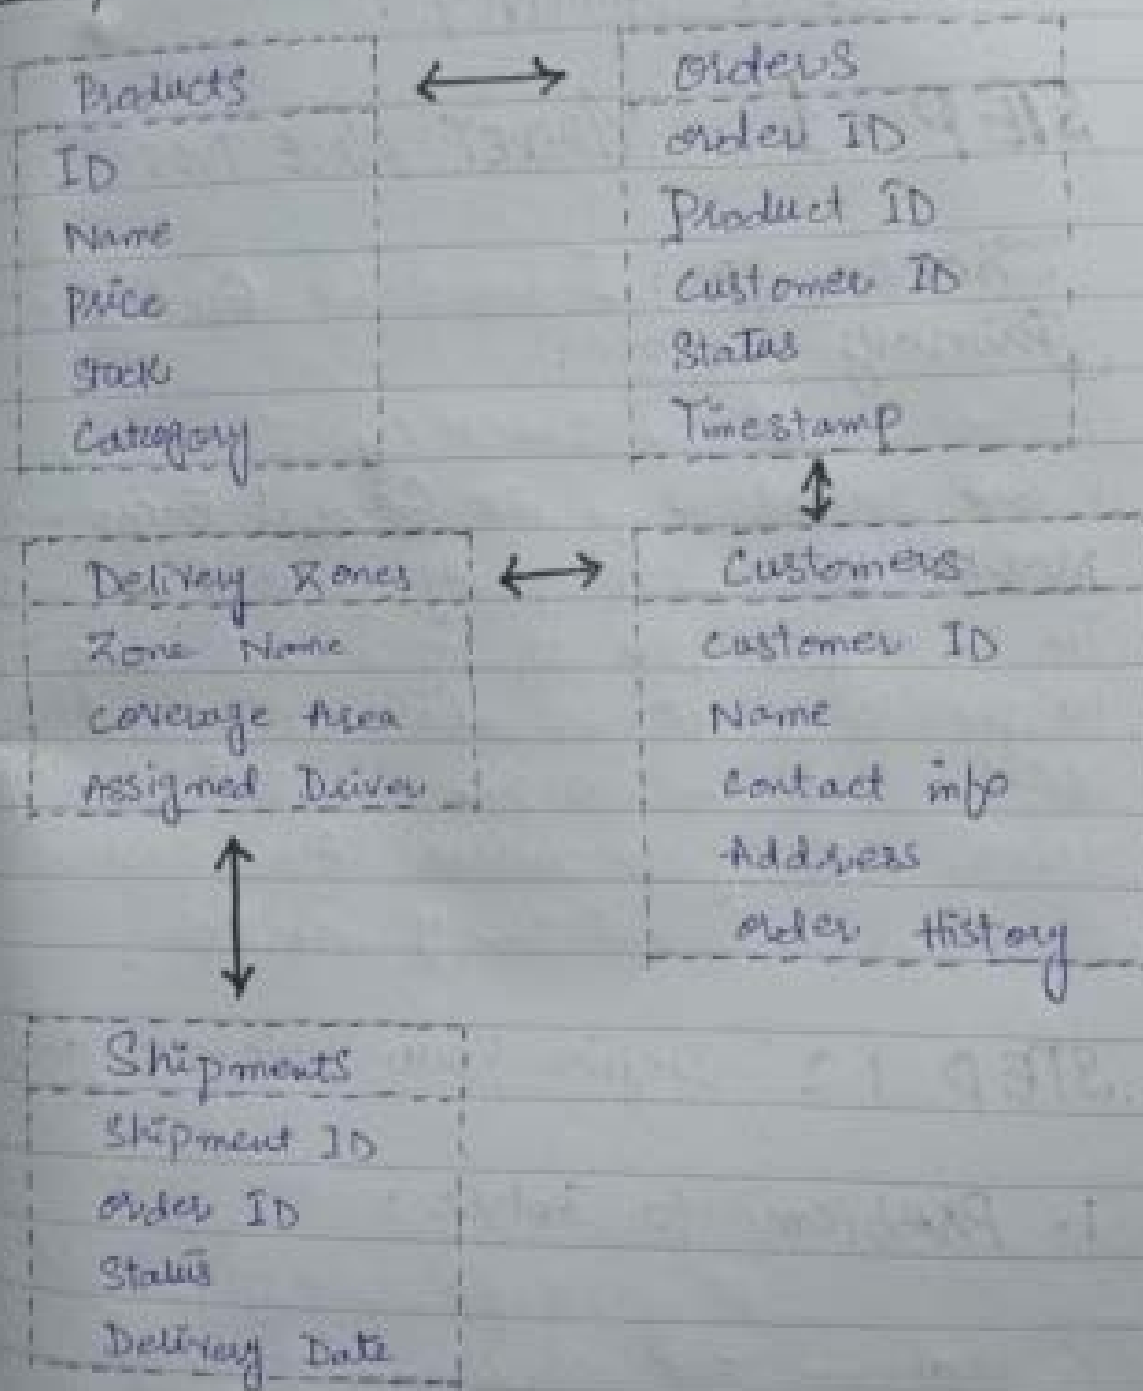 Products
ID
Name
Price
Stock
Category
Orders
order ID
Product ID
Customer ID
Status
Timestamp
Delivery Zones
Zone Name
Coverage Area
Assigned Driver
Customers
Customer ID
Name
Contact info
Address
order History
Shipments
Shipment ID
order ID
Status
Delivery Date